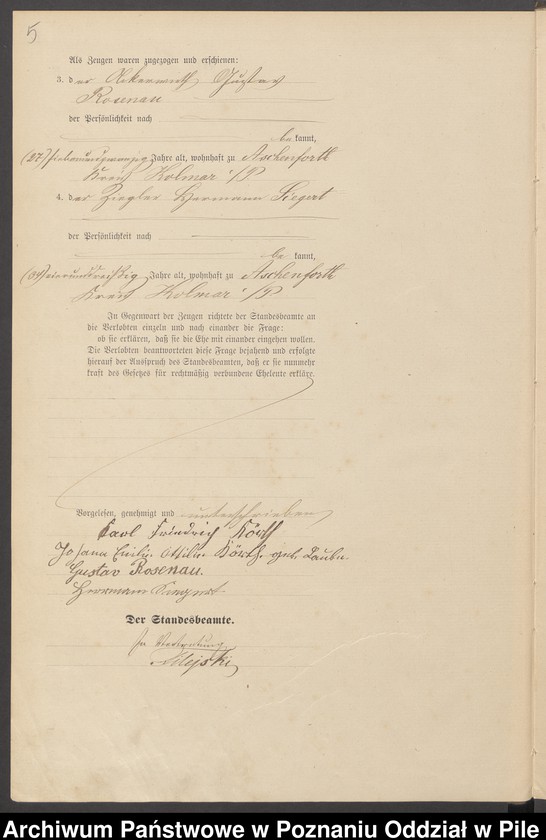 5
Als Zeugen waren zugezogen und erschienen:
3. der Ackerwirth Gustav
Rosenau
der Persönlichkeit nach
bekannt,
(27) siebenundzwanzig Jahre alt, wohnhaft zu Aschenforth
Kreis Kolmar i/P.
4. der Ziegler Hermann Siegert
der Persönlichkeit nach
bekannt,
(34) vierunddreißig Jahre alt, wohnhaft zu Aschenforth
Kreis Kolmar i/P.
In Gegenwart der Zeugen richtete der Standesbeamte an
die Verlobten einzeln und nach einander die Frage:
ob sie erklären, daß sie die Ehe mit einander eingehen wollen.
Die Verlobten beantworteten diese Frage bejahend und erfolgte
hierauf der Ausspruch des Standesbeamten, daß er sie nunmehr
kraft des Gesetzes für rechtmäßig verbundene Eheleute erkläre.
Vorgelesen, genehmigt und unterschrieben
Karl Friedrich Körth
Johana Emilie Otilie Körth geb.
Gustav Rosenau.
Hermann
Der Standesbeamte.
In Vertretung
Archiwum Państwowe w Poznaniu Oddział w Pile